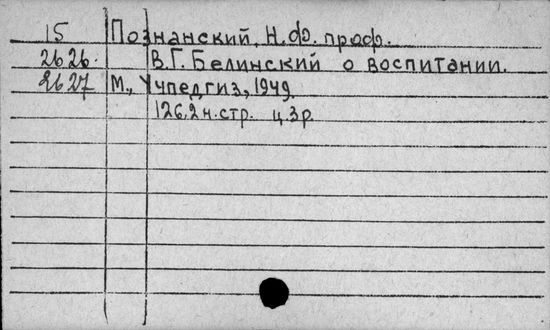 15 Познанский, Н.Ф. проф.
2626. В.Г. Белинский о воспитании.
2627 М., Учпедгиз, 1949.
126,2н.стр. ц.3р.